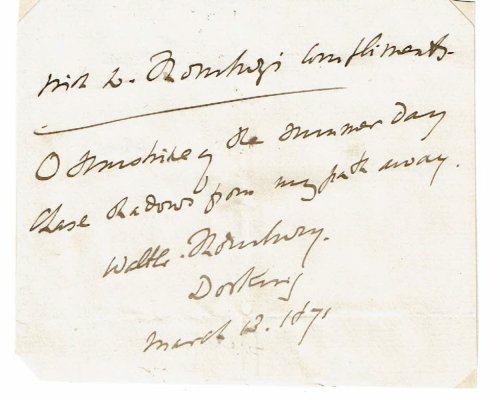 with W. Thornbury's compliments.
O sunshine of the summer day
Chase shadows from my path away.
Walter Thornbury.
Dorking
March 13. 1871